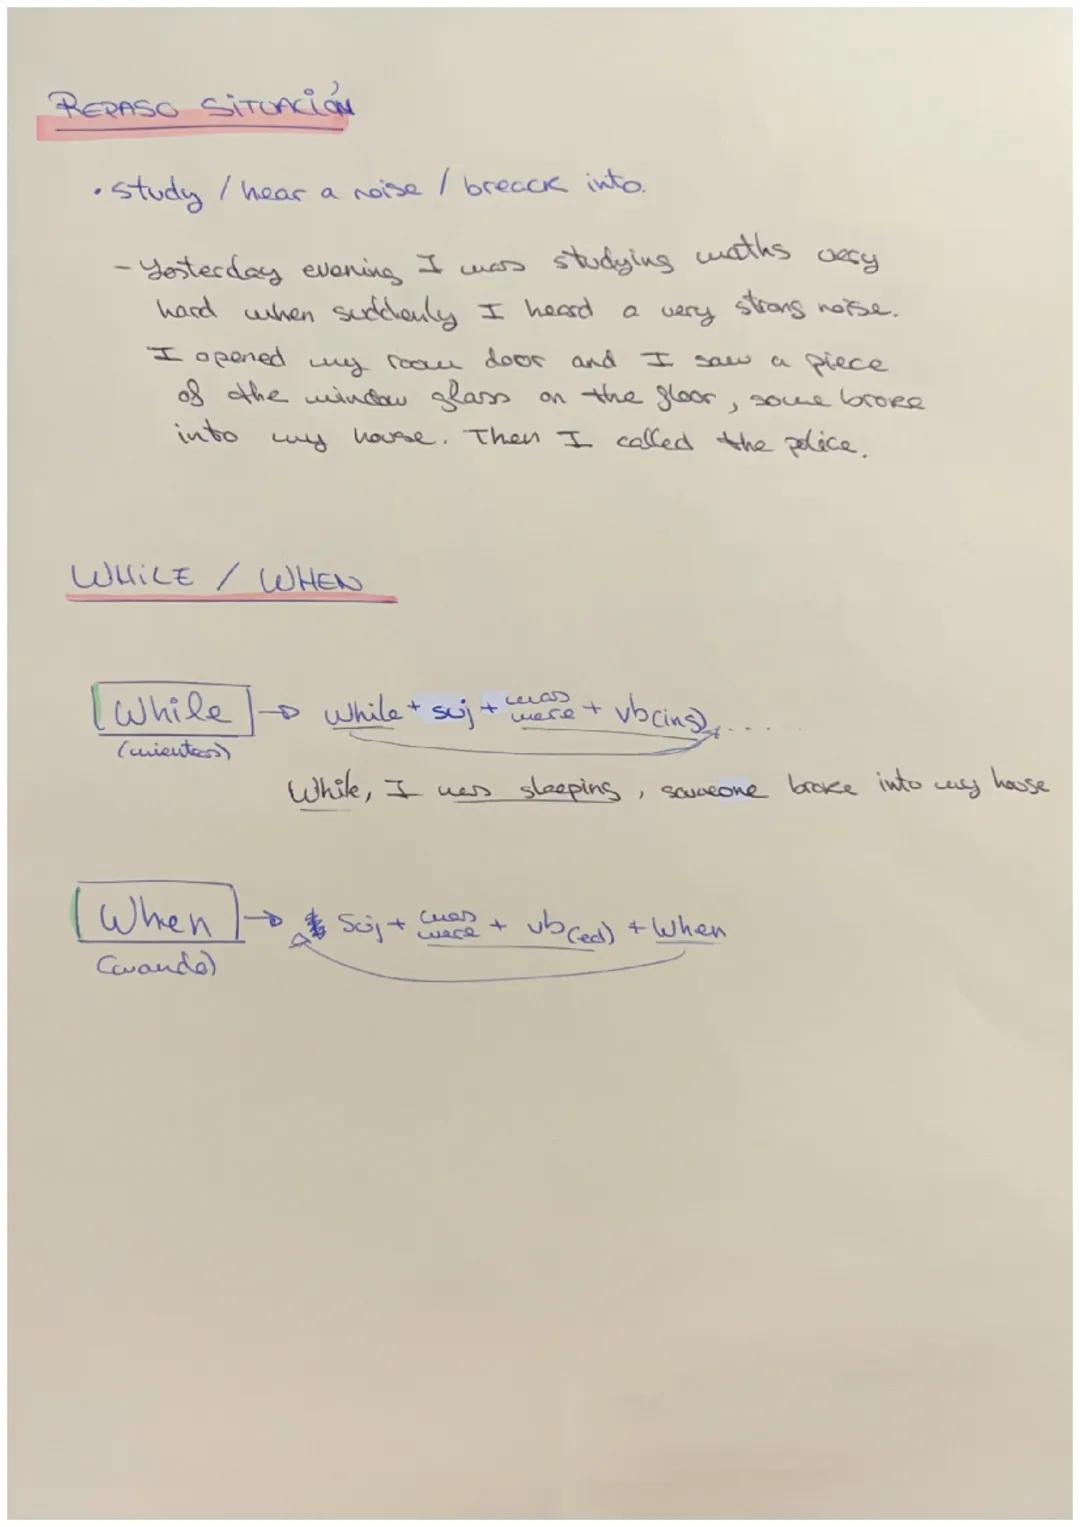 REPASO SITUACIÓN
• study / hear a noise / breack into.
- Yesterday evening I was studying maths very
hard when suddenly I heard a very strong noise.
I opened my room door and I saw a piece
of the window glass on the floor, some broke
into my house. Then I called the police.
WHILE / WHEN
While → while + suj + was were + vb(ing), ....
(mientras)
While, I was sleeping, someone broke into my house
When → Suj + was were + vb(ed) + When
(cuando)